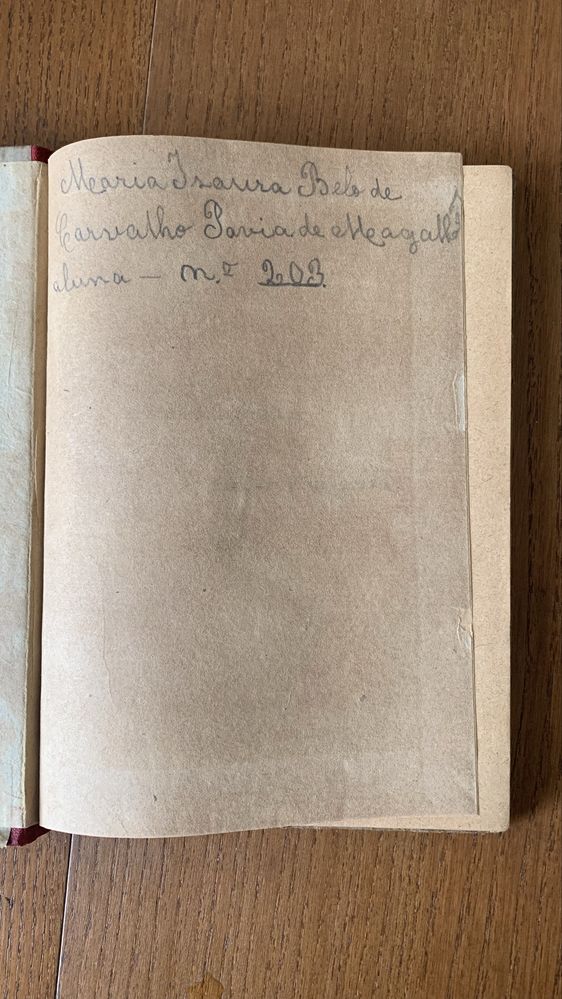 Maria Izaura Belo de
Carvalho Pavia de Magalhã
aluna — n.º 203